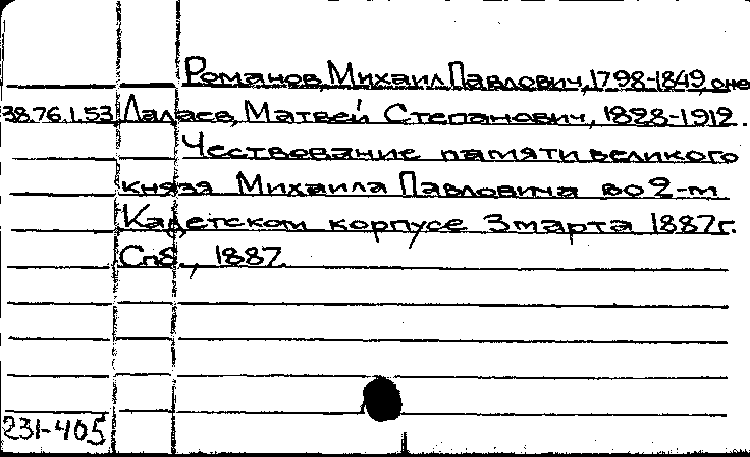 Романов, Михаил Павлович, 1798-1849, оне
38.76.1.53 Лалаев, Матвей Степанович, 1828-1912.
Чествование памяти великого
князя Михаила Павловича во 2-м
Кадетском корпусе 3 марта 1887г.
Спб., 1887.
231-405